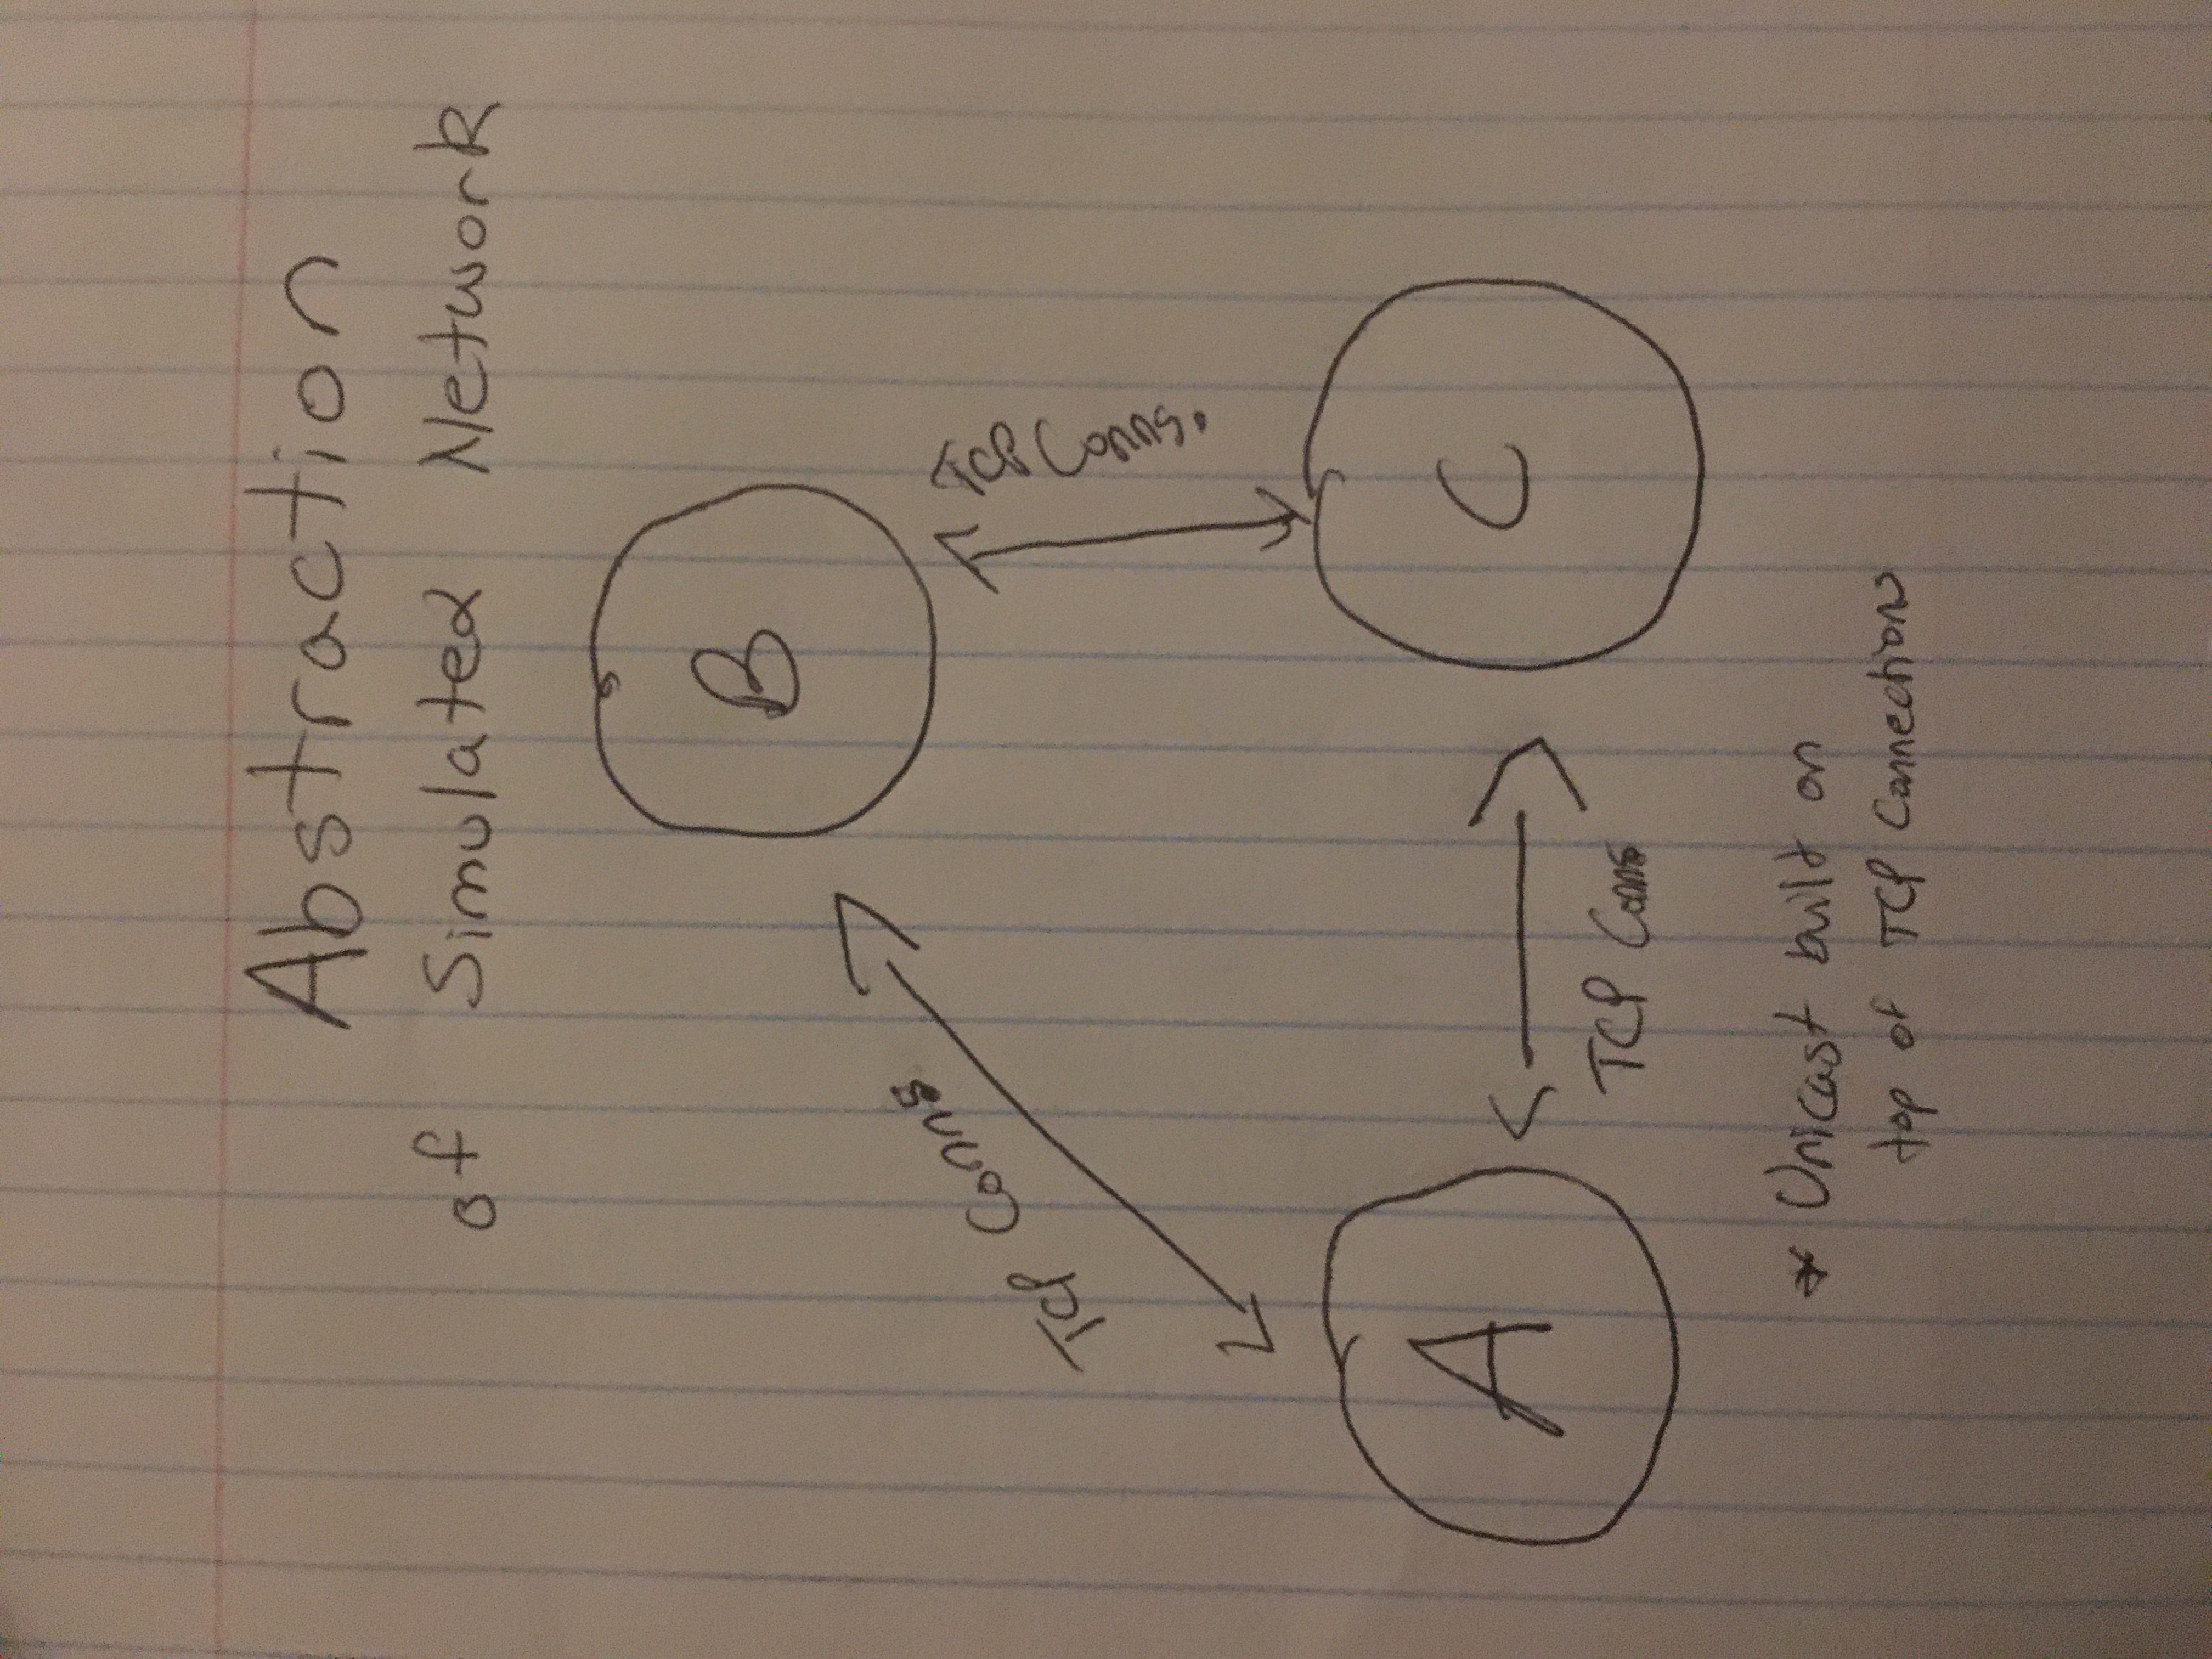 Abstraction
of Simulated Network
B
TCP Conns
TCP Conns.
A
C
TCP Conns
* Unicast built on
top of TCP Connections